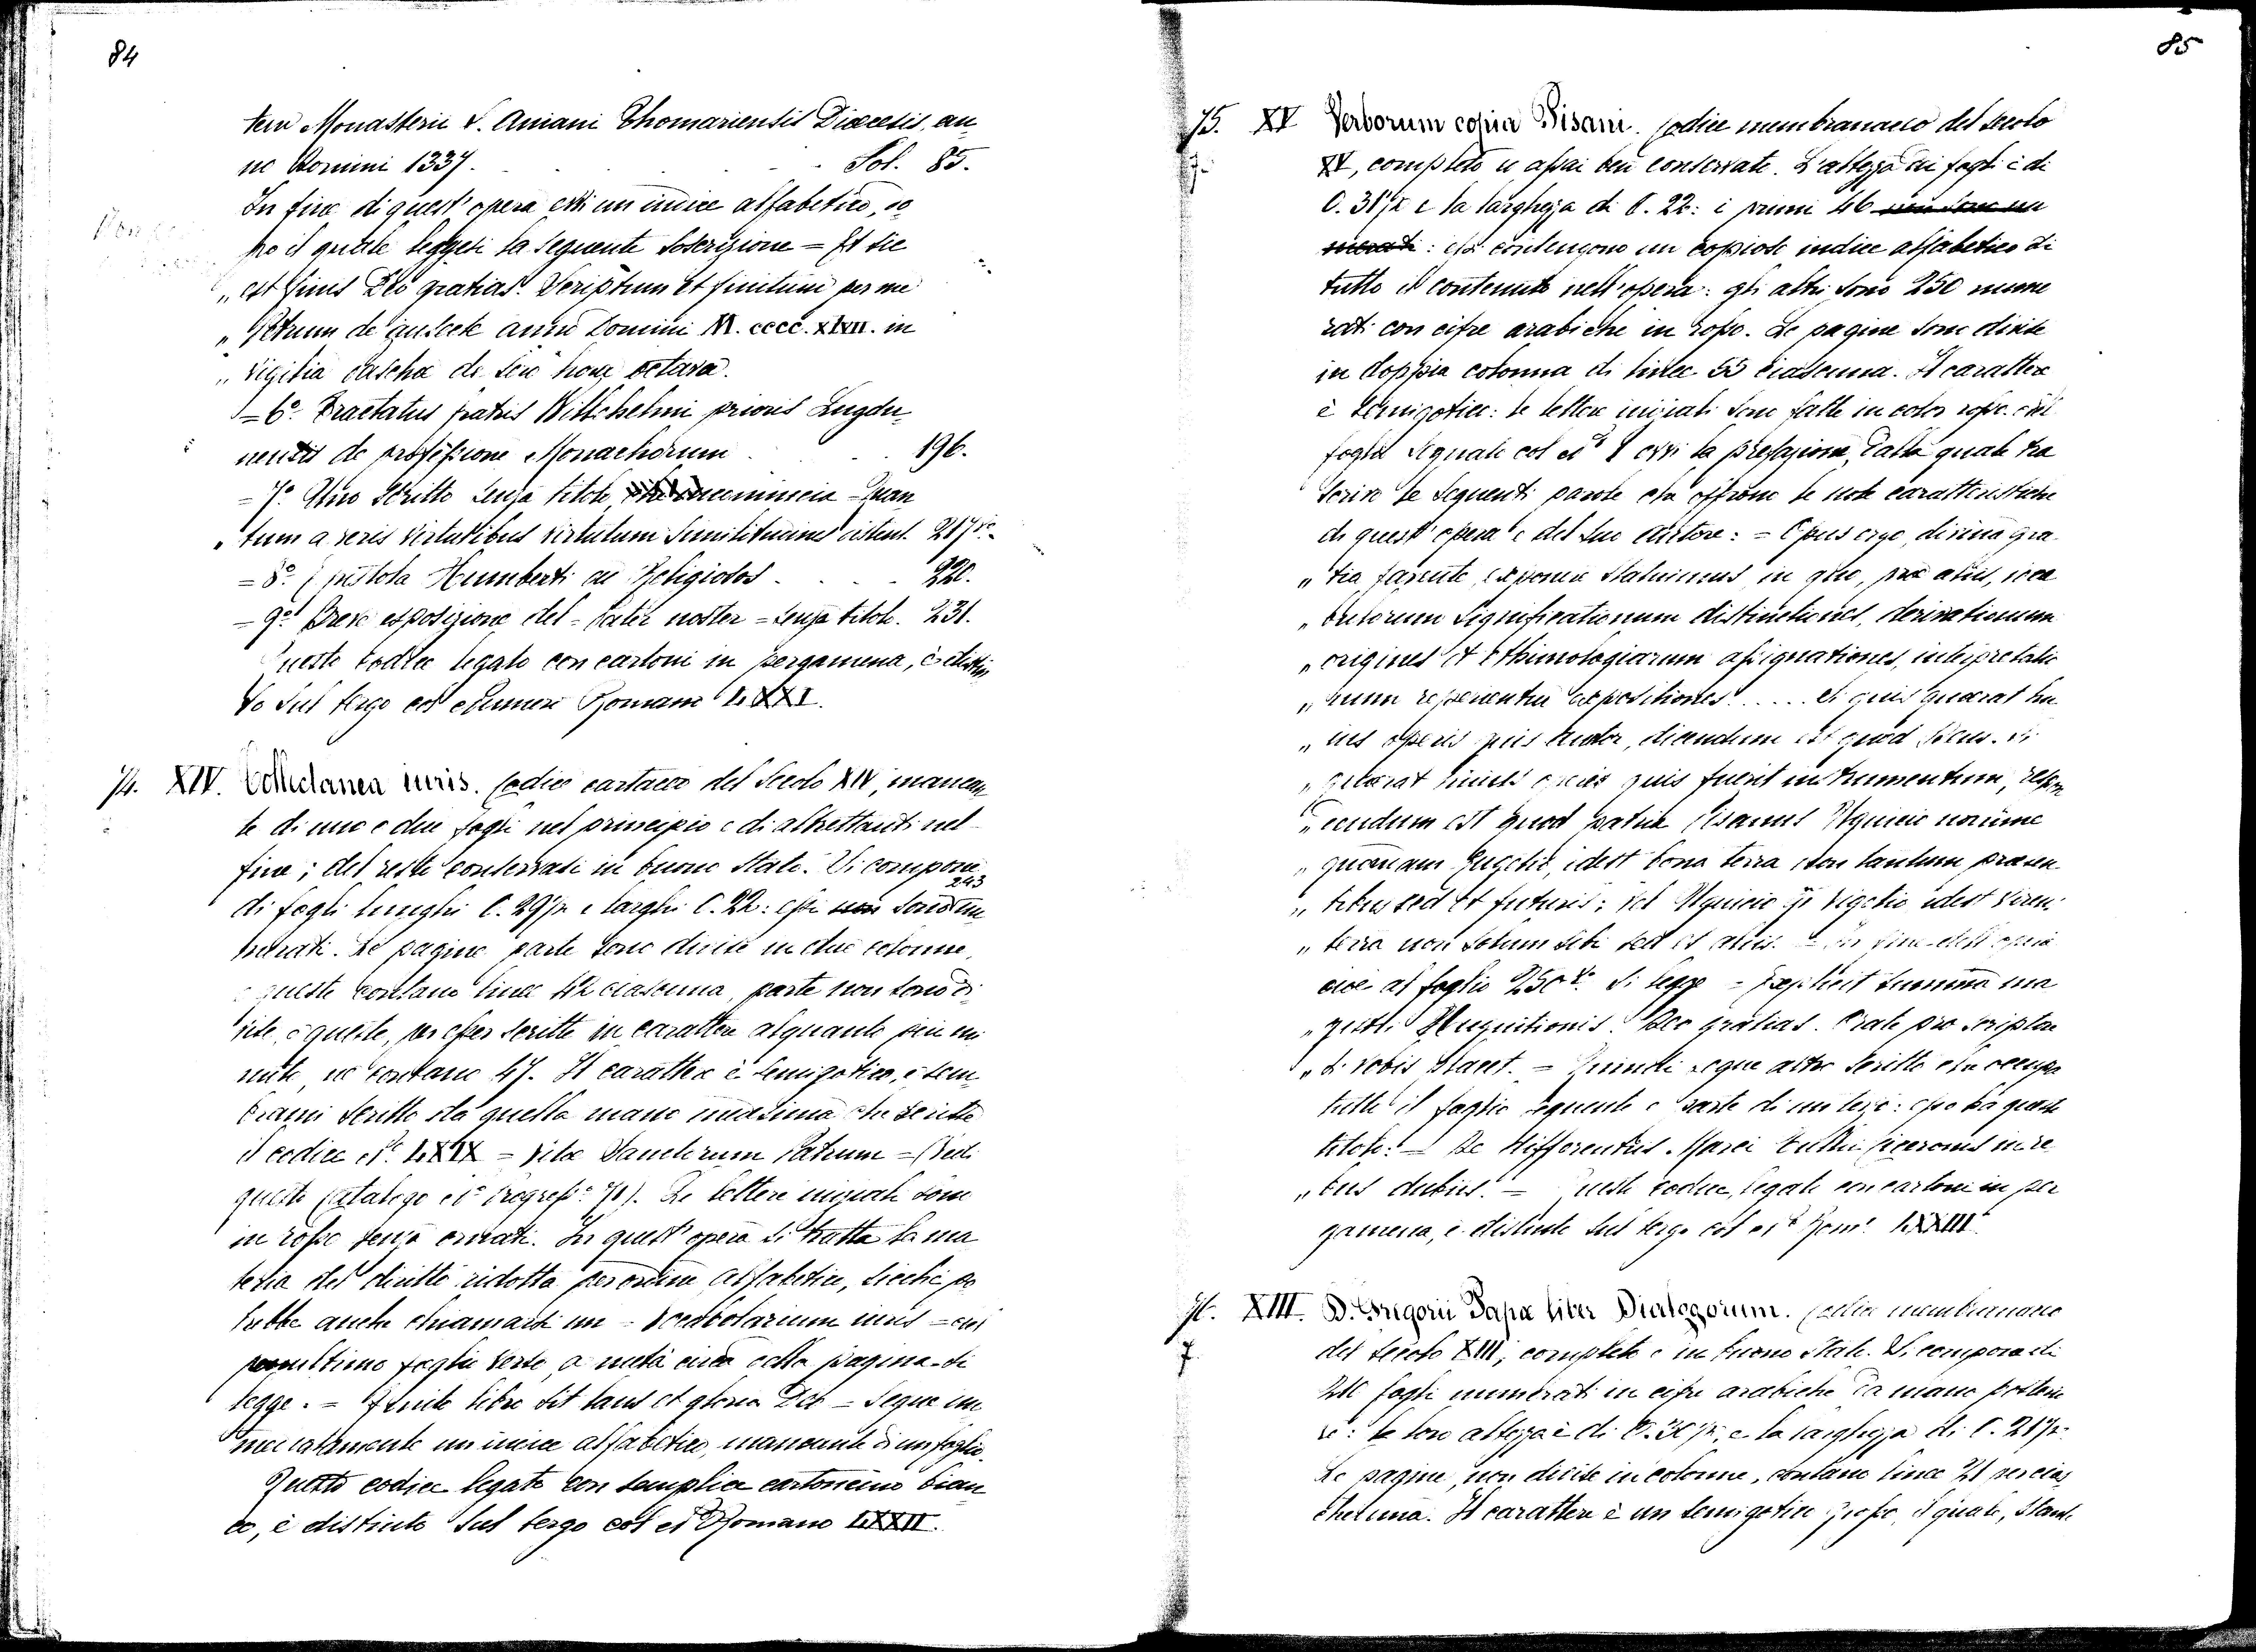 84
tem Monasterii S. Aniani Thomariensis Diœcesis, an-
no Domini 1337. Fol. 85.
In fine di quest'opera evvi un indice alfabetico, do
po il quale leggesi la seguente soscrizione = Et sic
„ est finis Deo gratias. Scriptum et finitum per me
„ Petrum de anno Domini M. cccc. xlvii. in
„ vigilia pascha de hora octava.
= 6.° Tractatus fratris Willchelmi prioris Lugdu-
nensis de professione Monachorum 196.
= 7.° Uno scritto senza titolo, incomincia = Quan
„ tum a veris virtutibus virtutum similitudines distent. 217 v.°
= 8.° Epistola Humberti ad Religiosos 220.
= 9.° Breve esposizione del = Pater noster = senza titolo. 231.
Questo codice legato con cartoni in pergamena, è distin
to sul tergo col Numero Romano LXXI.
74. XIV. Collectanea iuris. Codice cartaceo del Secolo XIV, mancan
te di uno o due fogli nel principio e di altrettanti nel
fine; del resto conservasi in buono stato. Si compone
di 243 fogli lunghi C. 29 1/2 e larghi C. 22: essi non sono nu
merati. Le pagine parte sono divise in due colonne,
e queste contano linee 42 ciascuna, parte non sono di
vise, e queste, per esser scritte in carattere alquanto più mi
nuto, ne contano 47. Il carattere è semigotico, e sem
brami scritto da quella mano medesima che scrisse
il codice N.° LXIX = Vitæ Sanctorum Patrum = (Vedi
questo Catalogo N.° progress.° 71). Le lettere iniziali sono
in rosso senza ornati. In quest'opera si tratta la ma
teria del diritto ridotta per ordine alfabetico, sicchè po
trebbe anche chiamarsi un = Vocabolarium iuris =
penultimo foglio verso, a metà circa della pagina si
legge: = Finito libro sit laus et gloria Deo = Segue im
mediatamente un indice alfabetico, mancante di un foglio.
Questo codice legato con semplice cartoncino bian
co, è distinto sul tergo col N.° Romano LXXII.
85
75. XV Verborum copia Pisani. Codice membranaceo del secolo
7. XV, completo e assai ben conservato. L'altezza dei fogli è di
C. 31 1/2 e la larghezza di C. 22: i primi 46 non sono nu
merati: essi contengono un copioso indice alfabetico di
tutto il contenuto nell'opera: gli altri sono 250 nume
rati con cifre arabiche in rosso. Le pagine sono divise
in doppia colonna di linee 53 ciascuna. Il carattere
è semigotico: le lettere iniziali sono fatte in color rosso. Nel
foglio segnato col N.° 1 evvi la prefazione, dalla quale tra
scrivo le seguenti parole che offrono le note caratteristiche
di quest'opera e del suo autore: = Opus ergo, divina gra
„ tia favente, exponere statuimus, in quo, præ aliis, voca
„ bulorum significationum distinctiones, derivationum
„ origines et ethimologiarum assignationes, interpretatio
„ num reperientur expositiones..... Si quis quærat hu
„ ius operis quis Autor, dicendum est quod Deus. Si
„ quærat huius operis quis fuerit instrumentum, respon
„ dendum est quod patria Pisanus Uguicio nomine
„ quasi Eugetio, idest bona terra non tantum præsen
„ tibus sed et futuris: vel Uguicio vigetio idest virens
„ terra non solum sibi sed et aliis. = In fine dell'opera
cioè al foglio 250 v.° si legge = Explicit summa ma
„ gistri Huguitionis. Deo gratias. Orate pro scriptore
„ si vobis placet. = Quindi segue altro scritto che occupa
tutto il foglio seguente e parte di un terzo: esso ha questo
titolo: = De differentiis Marci Tullii Ciceronis in re
„ bus dubiis. = Questo codice, legato con cartoni in per
gamena, è distinto sul tergo col N.° Rom.° LXXIII.
76. XIII. D. Gregorii Papæ liber Dialogorum. Codice membranaceo
7. del secolo XIII, completo e in buono stato. Si compone di
fogli numerati in cifre arabiche da mano posterio
re: la loro altezza è di C. 30 1/2, e la larghezza di C. 21 1/2.
Le pagine, non divise in colonne, contano linee 21 per cias
cheduna. Il carattere è un semigotico grosso, il quale, stante